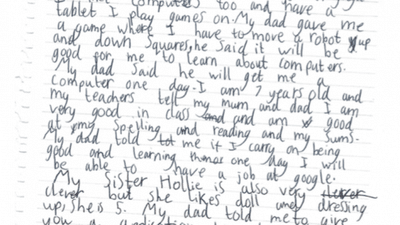 computers too and have a
tablet I play games on. My dad gave me
a game where I have to move a robot up
and down squares, he said it will be
good for me to learn about computers.
My dad said he will get me a
computer one day. I am 7 years old and
my teachers tell my mum and dad I am
very good in class and am good
at my spelling and reading and my sums.
My dad told me if I carry on being
good and learning one day I will
be able to have a job at google.
My sister Hollie is also very clever
clever but she likes doll and dressing
up, she is 5. My dad told me to give
you